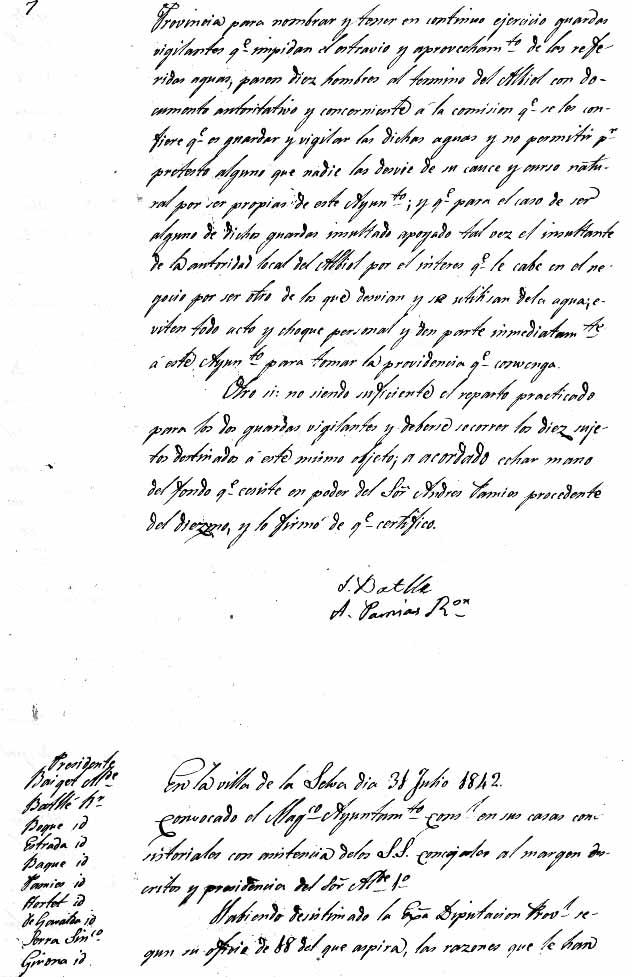 7
Provincia para nombrar y tener en continuo ejercicio guardas
vigilantes q.e impidan el estravio y aprovecham.to de los refe-
ridas aguas, pasen diez hombres al termino del Albiol con do-
cumento autoritativo y concerniente á la comision q.e se les con-
fiere q.e es guardar y vigilar las dichas aguas y no permitir p.r
protesto alguno que nadie las desvie de su cauce y curso natu-
ral por ser propias de este Ayun.to; y q.e para el caso de ser
alguno de dichos guardas insultado apoyado tal vez el insultante
de la autoridad local del Albiol por el interes q.e le cabe en el ne-
gocio por ser otro de los que desvian y se utilisan dela agua; e-
viten todo acto y choque personal y den parte inmediatam.te
á este Ayun.to para tomar la providencia q.e convenga.
Otro si: no siendo suficiente el reparto practicado
para los dos guardas vigilantes y deberse socorrer los diez suje-
tos destinados á este mismo objeto; a acordado echar mano
del fondo q.e ecsiste en poder del Sor. Andres Pamies procedente
del diezmo, y lo firmó de q.e certifico.
J. Batlle
A. Pamies R.on
Presidente
Baiget Al.de
Batllé R.r
Boque id
Estrada id
Baque id
Pamies id
Hortet id
de Gavalda id
Serra Sin.co
Girona id.
En la villa de la Selva dia 31 Julio 1842.
Convocado el Mag.co Ayuntam.to cons.l en sus casas con-
sistoriales con asistencia delos S.S. concejales al margen des-
critos y presidencia del Sor. Al.de 1.o
Habiendo desestimado la Exa. Diputacion Prov.l se-
gun su oficio de 18 del que aspira, las razones que le han